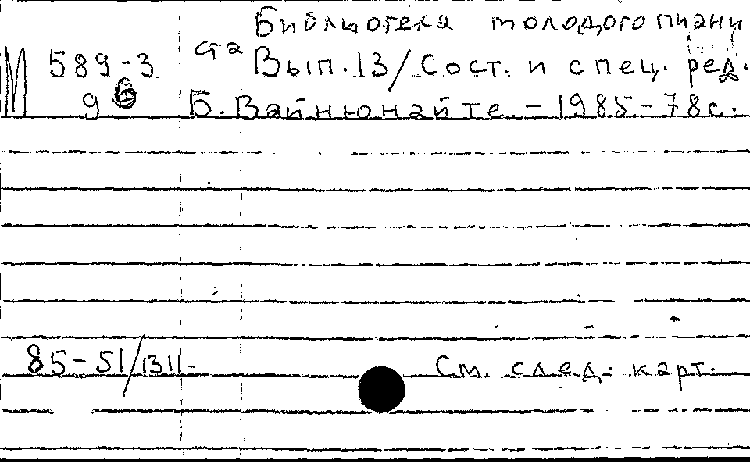 Библиотека молодого пиани
ста
М 589-3 Вып.13/Сост. и спец. ред.
96 Б. Вайнюнайте. - 1985 - 78с.
85-51/1311- См. след. карт.